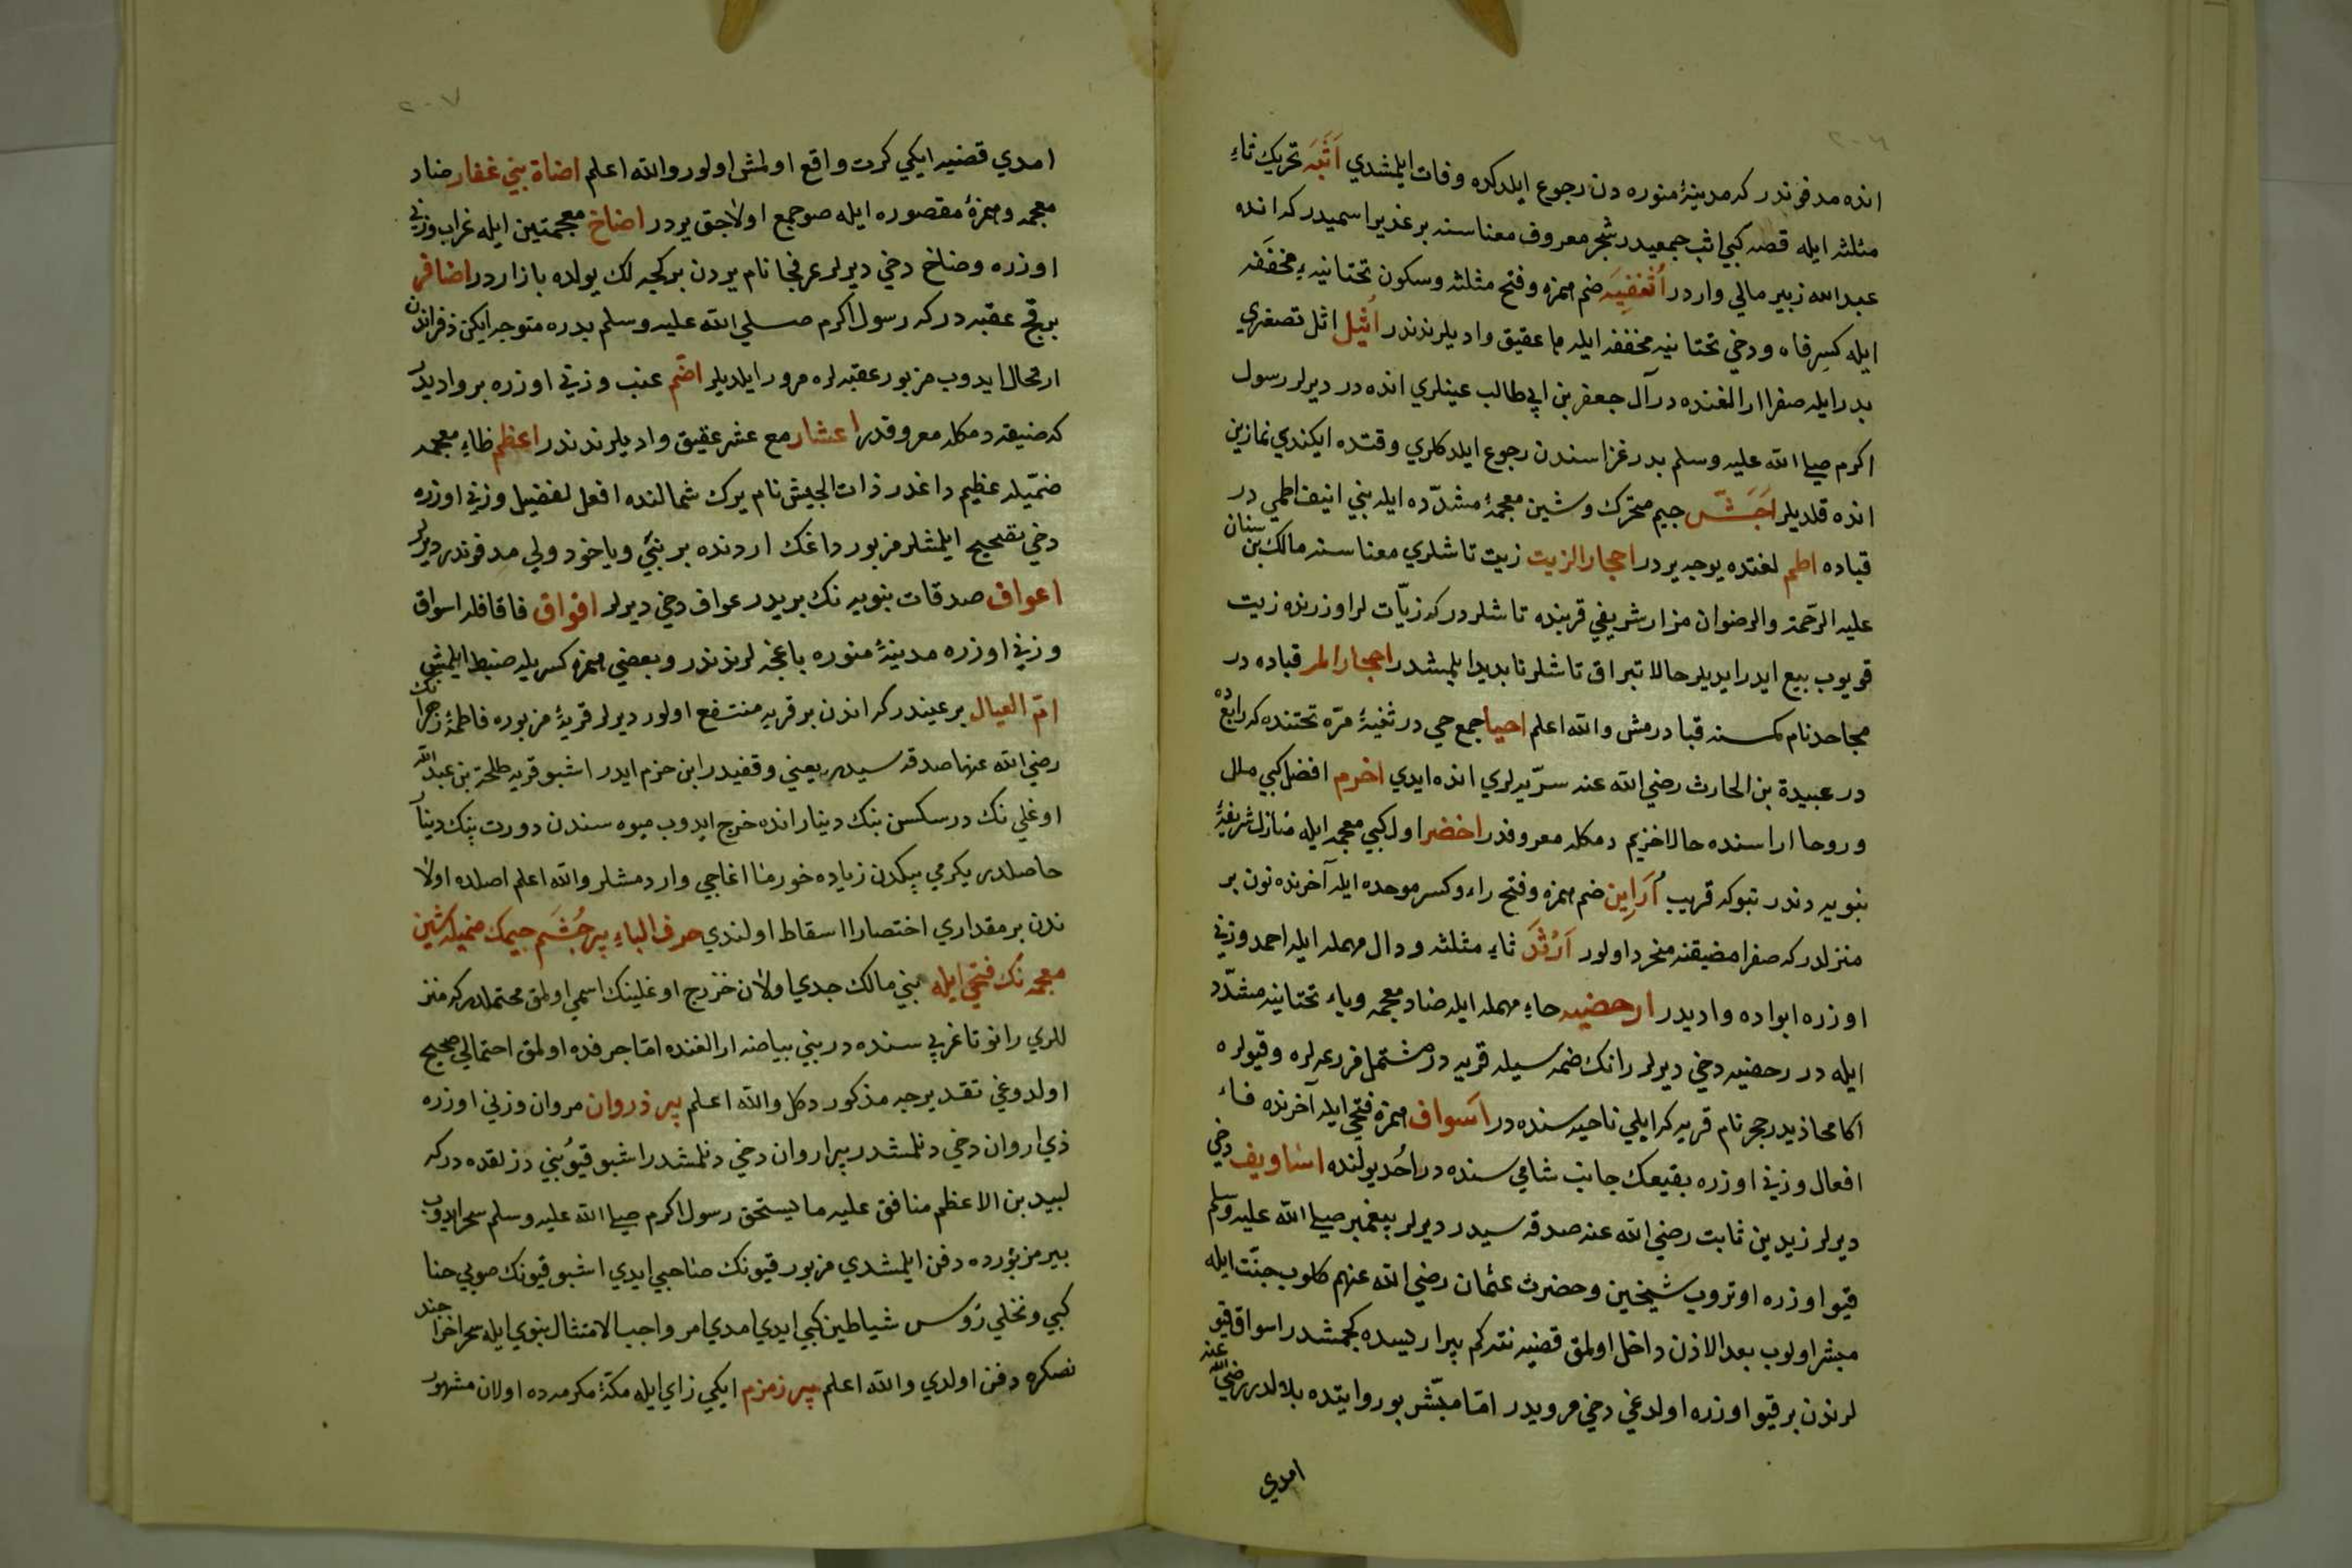 ٢٠٦
انده مدفوندر كه مدينۀ منوره دن رجوع ايلدكده وفات ايلمشدي اَثَبَه تحريك ثاءِ
مثلثه ايله قصبه كبي اثب جمعيدر شجر معروف معناسنه بر غدير اسميدر كه انده
عبدالله زبير مالي واردر اُثَيفِيَه ضم همزه وفتح مثلثه وسكون تحتانيهءِ مخففه
ايله كسرِ فاء ودخي تحتانيه مخففه ايله ما عقيق واديلرندندر اُثيل اثل تصغيري
بدر ايله صفرا ارالغنده در آل جعفر بن ابي طالب عينلري انده در ديرلر رسول
اكرم صلي الله عليه وسلم بدر غزاسندن رجوع ايلدكلري وقتده ايكندي نمازين
انده قلديلر اَجَشّ جيم متحرك وشين معجمۀ مشدّده ايله بني انيف اطمي در
قباده اطم لغتده يوجه يردر احجار الزيت زيت تاشلري معناسنه مالك بن سنان
عليه الرحمة والرضوان مزار شريفي قربنده تاشلردر كه زيّات لر اوزرنده زيت
قويوب بيع ايدر ايديلر حالا تبراق تاشلر نابديد ايلمشدر احجار المر قباده در
مجاحد نام كمسنه قبا در مش والله اعلم احيا جمع حي در ثنيۀ مرّه تحتنده كه رابغ ده
در عبيدة بن الحارث رضي الله عنه سرّيه لري انده ايدي اخرم افضل كبي ملل
وروحا اراسنده حالا اخزيم دمكله معروفدر اخضر اول كبي معجمه ايله منازل شريفۀ
نبويه دندر تبوكه قريب اُرَاِين ضم همزه وفتح راء وكسر موحده ايله آخرنده نون بر
منزلدر كه صفرا مضيقنه منحر داولور اَرْثَد ثاءِ مثلثه ودال مهمله ايله احمد وزني
اوزره ابواده واديدر ارحضيه حاءِ مهمله ايله ضاد معجمه وياء تحتانيه مشدّد
ايله در رحضيه دخي ديرلر رانك ضمه سيله قريه در مشتمل مزرعه لره وقيولره
اكا محاذيدر حجر نام قريه كه ايلي ناحيه سنده در اسواف همزه فتحي ايله آخرنده فاء
افعال وزني اوزره بقيعك جانب شامي سنده در اُحُد يولنده اساويف دخي
ديرلر زيد بن ثابت رضي الله عنه صدقه سيدر ديرلر پيغمبر صلي الله عليه وسلم
قيو اوزره اوتروب شيخين وحضرت عثمان رضي الله عنهم كلوب جنّت ايله
مبشر اولوب بعد الاذن داخل اولمق قضيه نته كم بير اريسده كچمشدر اسواق قيو
لرندن بر قيو اوزره اولدغي دخي مرويدر امّا مبشّر بو روايتده بلالدر رضي الله عنه
امدي
٢٠٧
امدي قضيه ايكي كرت واقع اولمش اولور والله اعلم اضاة بني غفار ضاد
معجمه وهمزۀ مقصوره ايله صو جمع اولاجق يردر اضاخ معجمتين ايله غراب وزني
اوزره وضاخ دخي ديرلر عرفجا نام يردن بر كيجه لك يولده بازاردر اضافر
بر قچ عقبه در كه رسول اكرم صلي الله عليه وسلم بدره متوجه ايكن ذفراندن
ارتحال ايدوب مزبور عقبه لره مرور ايلديلر اضم عنب وزني اوزره بر واديدر
كه ضيقه دمكله معروفدر اعشار مع عشر عقيق واديلرندندر اعظم ظاءِ معجمه
ضمّيله عظيم داغدر ذات الجيش نام يرك شمالنده افعل تفضيل وزني اوزره
دخي تصحيح ايلمشلر مزبور داغك اردنده بر نبيّ وياخود ولي مدفوندر ديرلر
اعواف صدقات نبويه نك بريدر عواف دخي ديرلر افواق فا قافله اسواق
وزني اوزره مدينۀ منوره باغچه لرندندر وبعضي همزه كسريله ضبط ايلمش
امّ العيال بر عيندر كه اندن بر قريه منتفع اولور ديرلر قريۀ مزبوره فاطمۀ زهرا نك
رضي الله عنها صدقه سيدر يعني وقفيدر ابن حزم ايدر اشبو قريه طلحة بن عبدالله
اوغلي نك در سكسن بنك دينار انده خرج ايدوب ميوه سندن دورت بنك دينار
حاصلدر يكرمي بيكدن زياده خورما اغاجي واردمشلر والله اعلم اصلده اولا
ندن بر مقداري اختصارا اسقاط اولندي حرف الباءِ بير جُشَم جيمك ضميله شين
معجمه نك فتحي ايله بني مالك جدي اولان خزرج اوغلينك اسمي اولمق محتملدر كه منز
للري رانوتا غربي سنده در بني بياضه ارالغنده امّا جرفده اولمق احتمالي صحيح
اولدوغي تقديرجه مذكور دكل والله اعلم بير ذروان مروان وزني اوزره
ذي اروان دخي دنلمشدر بير اروان دخي دنلمشدر اشبو قيو بني دزلقده در كه
لبيد بن الاعظم منافق عليه ما يستحق رسول اكرم صلي الله عليه وسلم سحر ايدوب
بير مزبورده دفن ايلمشدي مزبور قيونك صاحبي ايدي اشبو قيونك صويي حنا
كبي ونخلي رؤس شياطين كبي ايدي امدي امر واجب الامتثال نبوي ايله سحر اخراجند
نصكره دفن اولدي والله اعلم بير زمزم ايكي زاي ايله مكّۀ مكرمه ده اولان مشهور